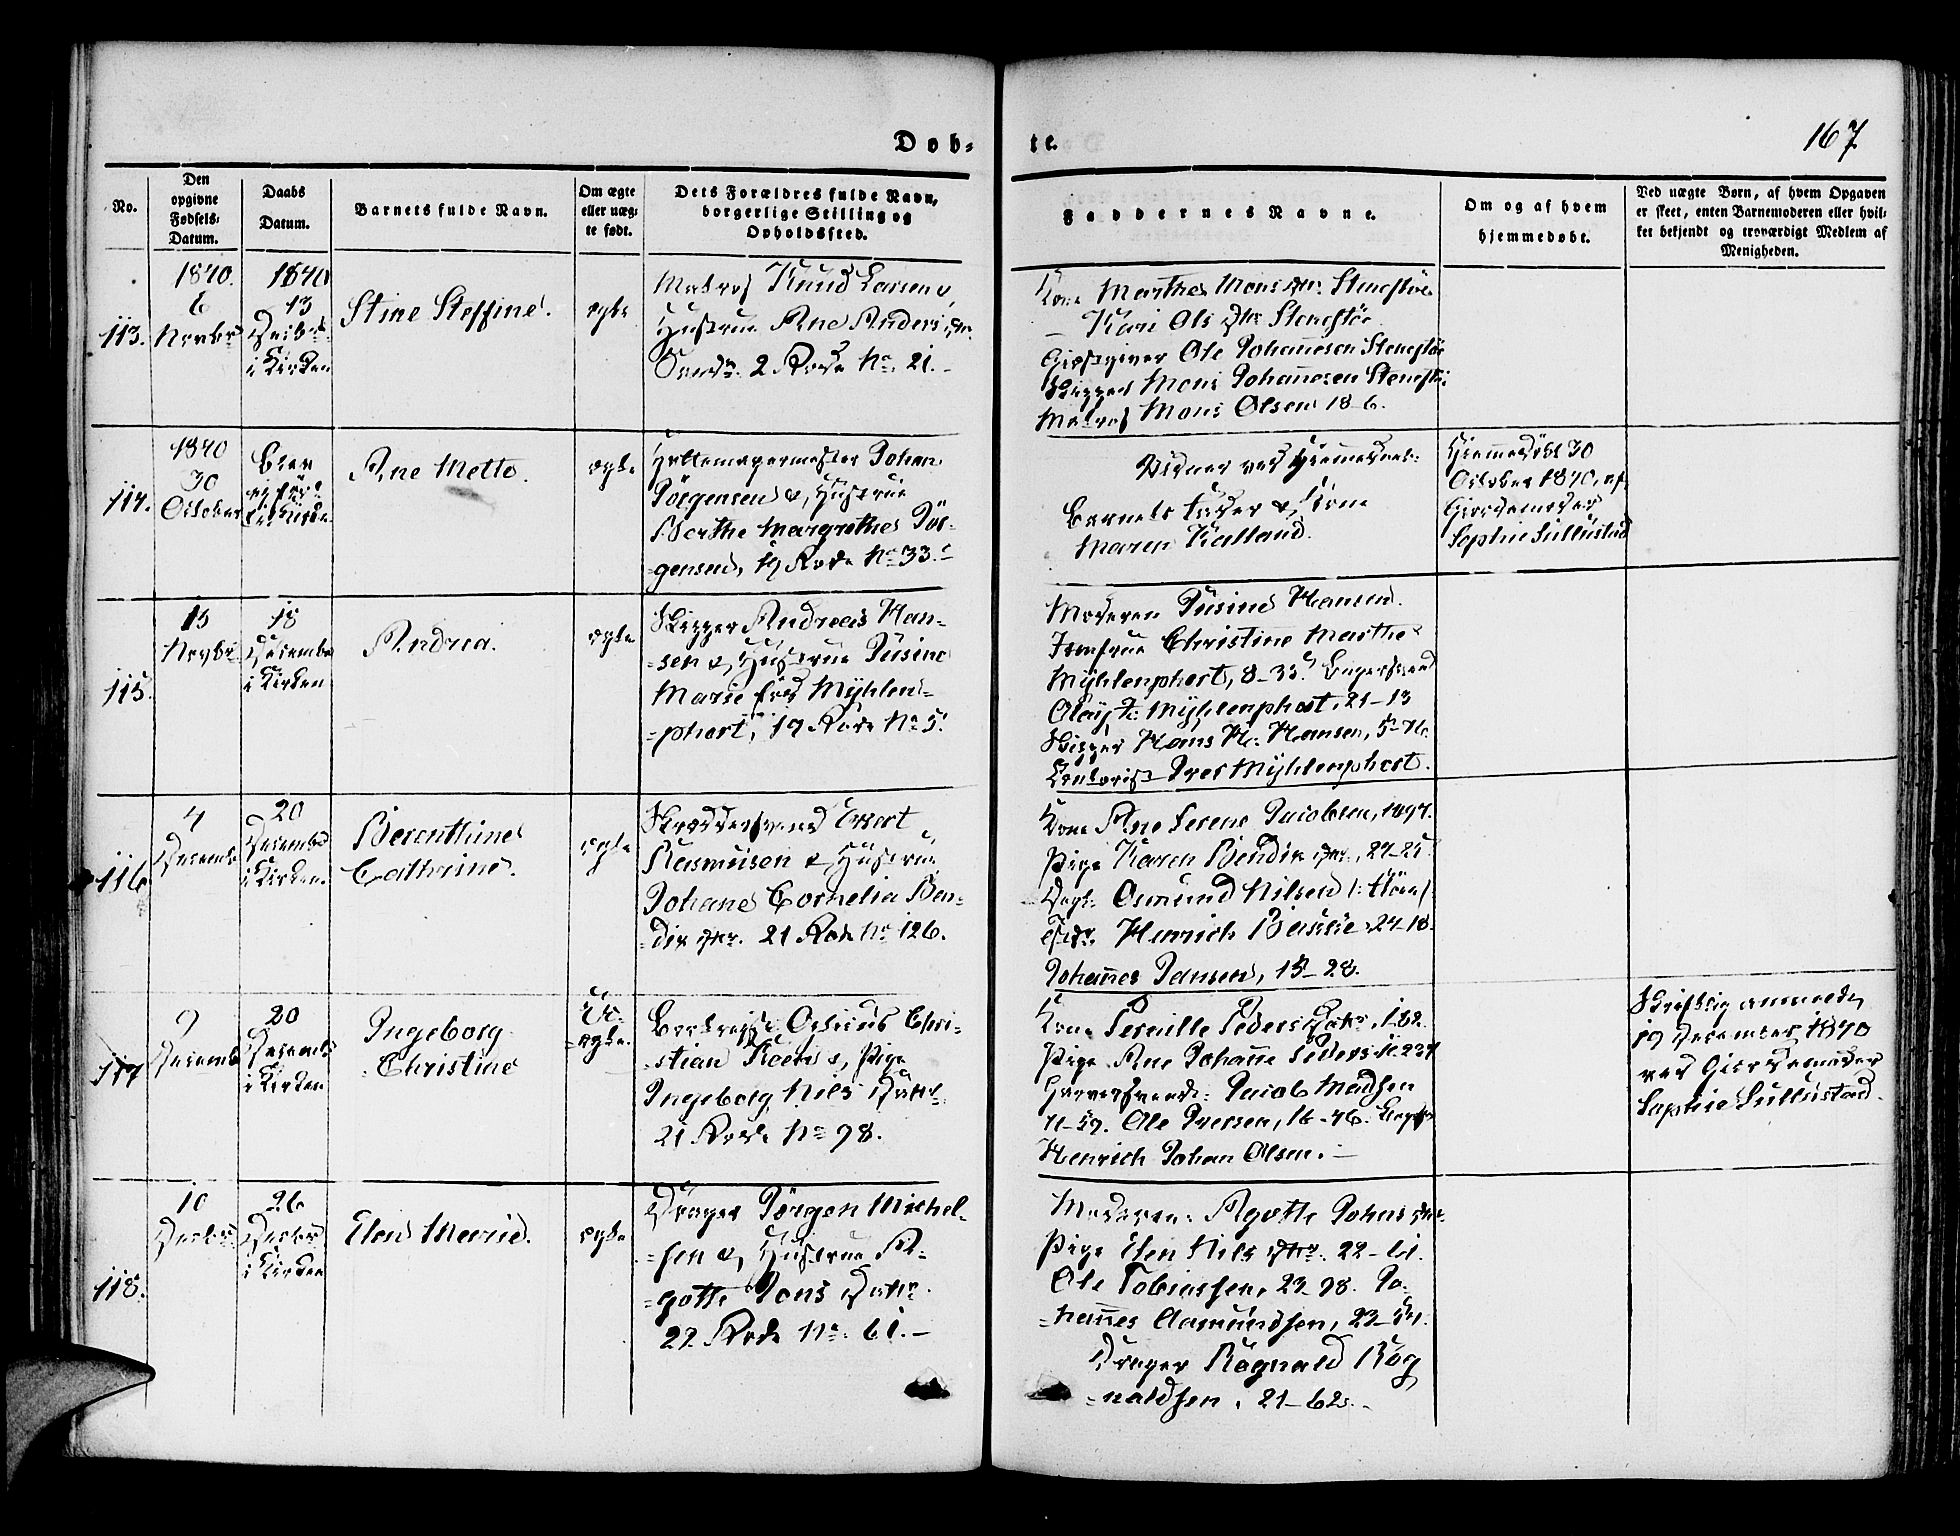 Døb-
te.
167
No.
Den
opgivne
Fødsels-
Datum.
Daabs
Datum.
Barnets fulde Navn.
Om ægte
eller uæg-
te født.
Dets Forældres fulde Navn,
borgerlige Stilling og
Opholdssted.
Faddernes Navne.
Om og af hvem
hjemmedøbt.
Ved uægte Børn, af hvem Opgaven
er skeet, enten Barnemoderen eller hvil-
ket bekjendt og troværdigt Medlem af
Menigheden.
113.
1840.
6
Novbr
1840
13
Decbr
i Kirken
Stine Steffine.
ægte
Matros Knud Larsen &
Hustrue Ane Anders Dtr.
2 Rode No. 21.
Kone Marthe Mons Dtr. Stenestøe
Kari Ols Dtr Stenestøe
Giestgiver Ole Johannesen Stenestøe
Skipper Mons Johannesen Stenestøe
Matros Mons Olsen 18-6.
114.
1840
30
October
Blev
ej
Ane Mette.
ægte
Pottemagermester Johan
Jörgensen &, Hustrue
Berthe Margrethe Jör-
gensen, 19 Rode No 33.
Vidner ved Hjemmedaab:
Barnets Fader & Kone
Maren Kalland.
Hjemmedöbt 30
October 1840, af
Giordemoder
Sophie Sullustad
115.
15
Novbr
18
Decembr
i Kirken
Andrea.
ægte
Skipper Andreas Han-
sen &, Hustrue Jusine
Marie fød Mÿhlen-
phort, 19 Rode No 5.
Moderen Jusine Hansen.
Jomfrue Christine Marthe
Mÿhlenphort, 8-35.
Mÿhlenphort, 21-13
Skipper Hans H. Hansen, 5-76.
Kontorist Iver Mÿhlenphort.
116.
4
Decembr
20
Decembr
i Kirken.
Berenthine
Cathrine.
ægte
Skræddersvend Ekert
Rasmusen &, Hustrue
Johane Cornelia Ben-
dix Dtr. 21 Rode No 126.
Kone Ane Serene Jacobsen,
Pige Karen Bendix Dtr., 27-25
Osmund Nilsen
Henrich Biesse 27-18.
Johannes Jansen, 15-28.
117
9
Decembr
20
Decembr
i Kirken
Ingeborg
Christine
Uæ-
gte.
Christian Koen &, Pige
Ingeborg Nils Datr.
21 Rode No 98.
Kone Pernille Peders Datr. 1.82.
Pige Ane Johanne Peders
Garversvend: Jacob Madsen
11-59. Ole Iversen, 16-76.
Henrich Johan Olsen.
Skriftlig anmeldt
19 December 1840
ved Giordemoder
Sophie Sullustad.
118.
10
Decbr
26
Decbr
i Kirken
Elen Marie.
ægte
Drager Jörgen Michel-
sen &, Hustrue A-
gotte Jons Datr.
22. Rode No. 61.
Moderen: Agotte Johns Dtr.
Pige Elen Nils Dtr. 22-61.
Ole Tobiassen, 23-98. Jo-
hannes Aamundsen, 23-
Drager Rögnald Rög
naldsen. 21-62.